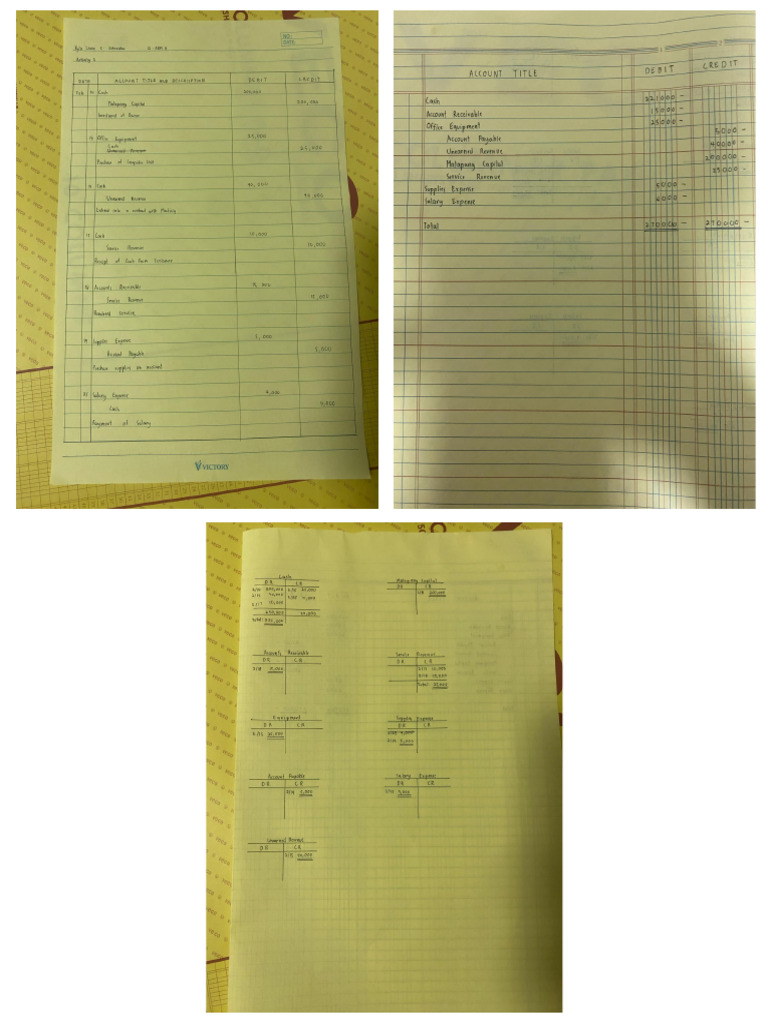 NO.:
DATE:
Activity 2
DATE ACCOUNT TITLE AND DESCRIPTION DEBIT CREDIT
Feb Cash 200,000
Matapang Capital 200,000
Investment of Owner
Office Equipment 25,000
Cash 25,000
Cash 40,000
Unearned Revenue 40,000
Entered into a contract with
17 Cash 10,000
Service Revenue 10,000
Receipt of Cash from Customer
18 Accounts Receivable 15,000
Service Revenue 15,000
Rendered Service
19 Supplies Expense 5,000
Account Payable 5,000
Purchase supplies on account
Salary Expense 4,000
Cash 4,000
Payment of Salary
VICTORY
1 2
ACCOUNT TITLE DEBIT CREDIT
Cash 221000 -
Account Receivable 15000 -
Office Equipment 25000 -
Account Payable 5000 -
Unearned Revenue 40000 -
Matapang Capital 200000 -
Service Revenue 25000 -
Supplies Expense 5000 -
Salary Expense 4000 -
Total 270000 - 270000 -
Cash
DR CR
2/17 10,000
Total:
Matapang Capital
DR CR
200,000
Accounts Receivable
DR CR
2/18 15,000
Service Revenue
DR CR
2/17 10,000
2/18 15,000
Total: 25,000
Equipment
DR CR
25,000
Supplies Expense
DR CR
2/19 5,000
Account Payable
DR CR
2/19 5,000
Salary Expense
DR CR
4,000
Unearned Revenue
DR CR
40,000